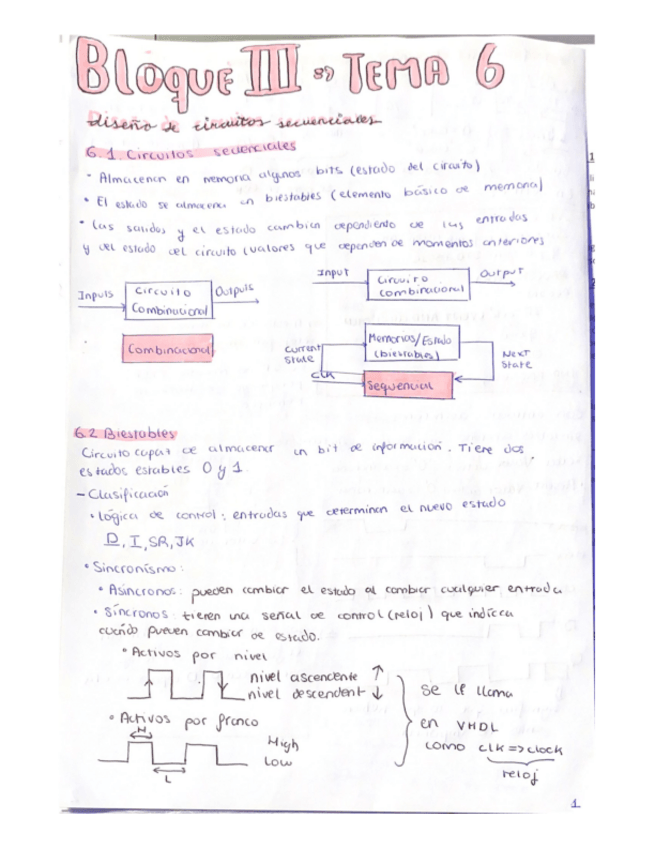 Bloque III ») TEMA 6
diseño de circuitos secuenciales
6.1. Circuitos secuenciales
- Almacenan en memoria algunos bits (estado del circuito)
• El estado se almacena en biestables (elemento básico de memoria)
• Las salidas y el estado cambian dependiendo de las entradas
y del estado del circuito (valores que dependen de momentos anteriores
Inputs
Circuito
Combinacional
Outputs
Combinacional
Input
Circuito
combinacional
Output
Current
State
Memorias/Estado
(biestables)
Next
State
CLK
Sequencial
6.2 Biestables
Circuito capaz de almacenar un bit de información. Tiene dos
estados estables 0 y 1.
- Clasificación
• lógica de control: entradas que determinan el nuevo estado
D, T, SR, JK
• Sincronismo:
• Asíncronos: pueden cambiar el estado al cambiar cualquier entrada
• Síncronos: tienen una señal de control (reloj) que indica
cuándo pueden cambiar de estado.
• Activos por nivel
nivel ascendente ↑
nivel descendent ↓
• Activos por franco
H
High
Low
L
Se le llama
en VHDL
como clk => clock
reloj
1